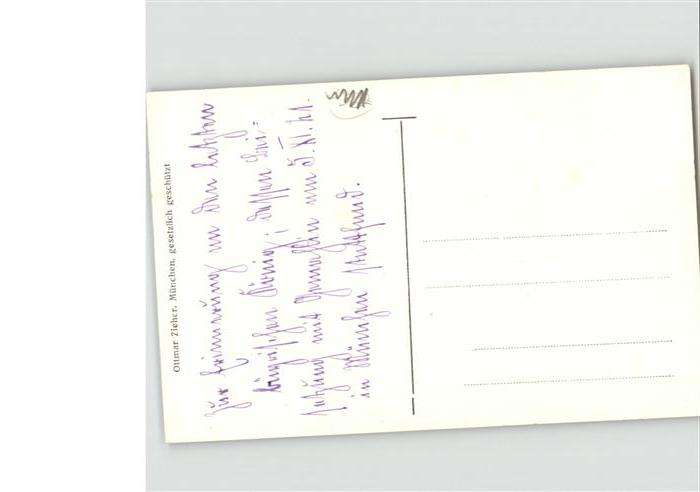 Zur Erinnerung an den letzten
bayrischen König, dessen Bei-
setzung mit Gemahlin am 5. XI. 21.
in München stattfand.
Ottmar Zieher, München, gesetzlich geschützt